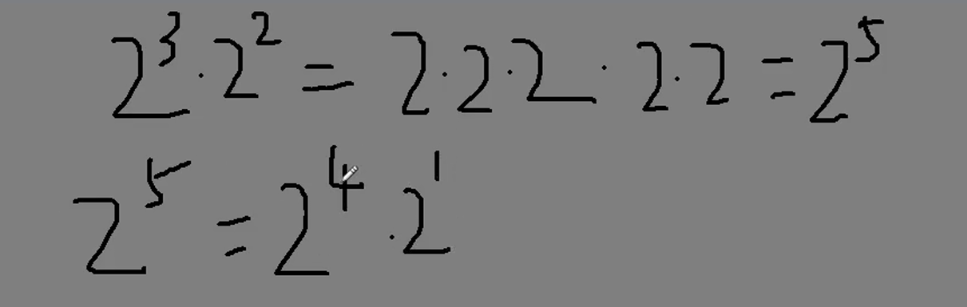 2³·2² = 2·2·2·2·2 = 2⁵
2⁵ = 2⁴·2¹